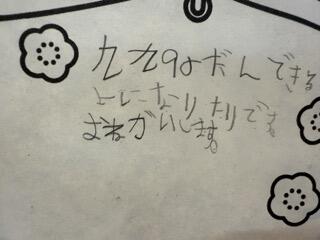 九九9よだんできる
よーになりたりです
おねがいします